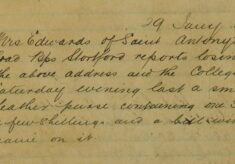 19 Jany
Mrs Edwards of Saint Antony
road Bps Stortford reports losin
the above address and the College
Saturday evening last a sm
leather purse containing one
a few shillings and a
name on it